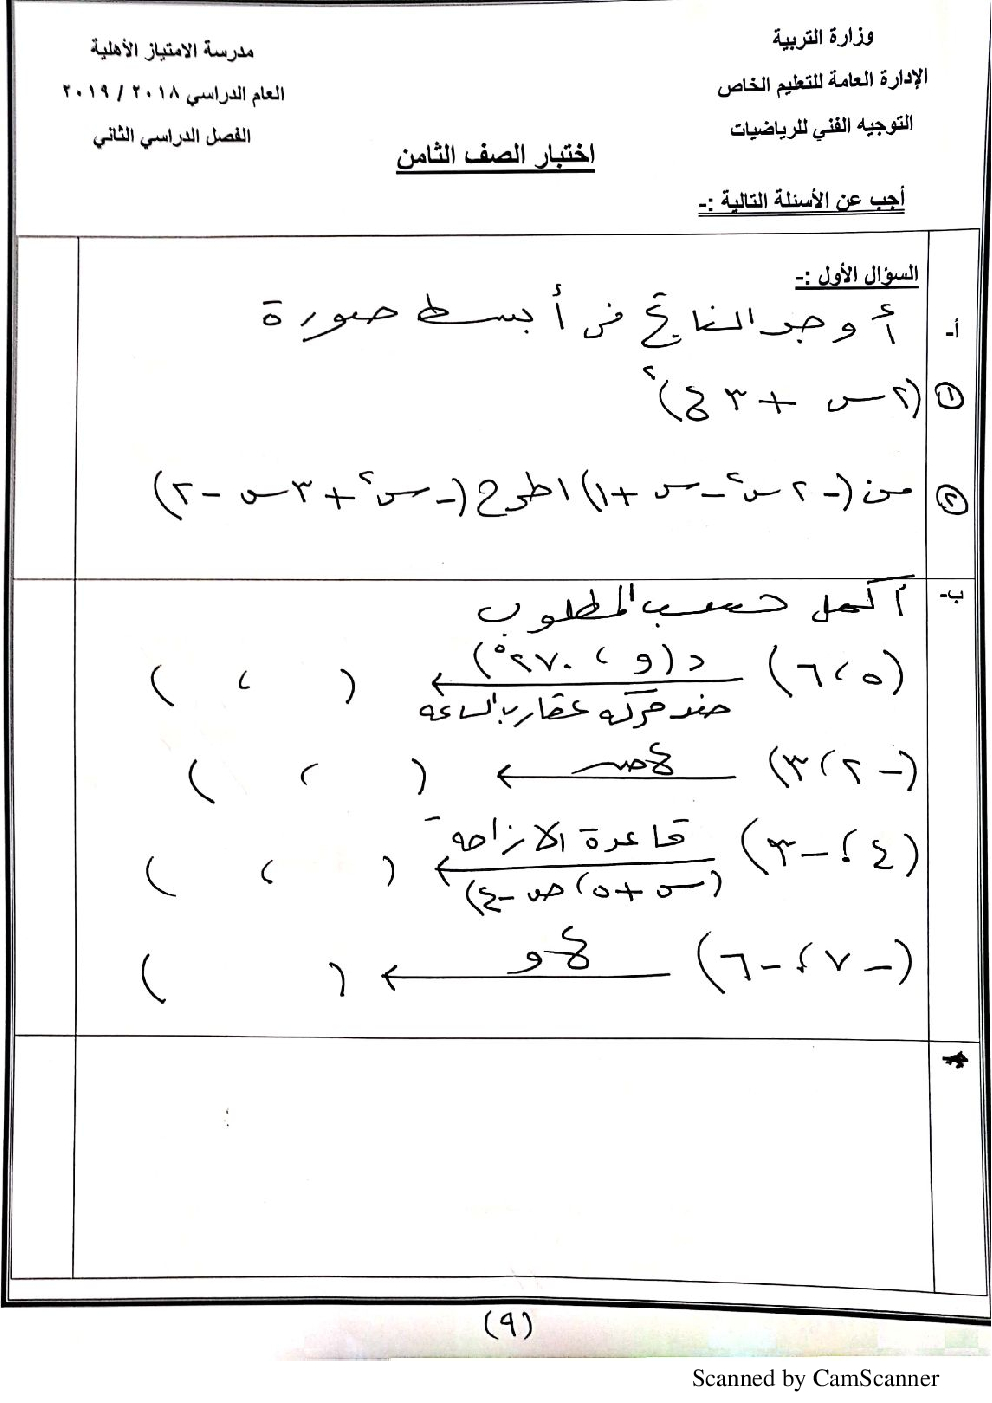 وزارة التربية
الإدارة العامة للتعليم الخاص
التوجيه الفني للرياضيات
مدرسة الامتياز الأهلية
العام الدراسي ٢٠١٨ / ٢٠١٩
الفصل الدراسي الثاني
اختبار الصف الثامن
أجب عن الأسئلة التالية :-
السؤال الأول :-
أ- أوجد الناتج في أبسط صورة
① (٢س + ٣ع)²
② من (-٢س² - س + ١) اطرح (-س² + ٣س - ٢)
ب- أكمل حسب المطلوب
(٥ ، ٦) د(و ، ٢٧٠°) ← ( ، )
ضد حركة عقارب الساعة
(-٢ ، ٣) ع ص ← ( ، )
(٤ ، -٣) قاعدة الازاحة ← ( ، )
(س + ٥ ، ص - ٤)
(-٧ ، -٦) ع و ← ( )
(٩)
Scanned by CamScanner